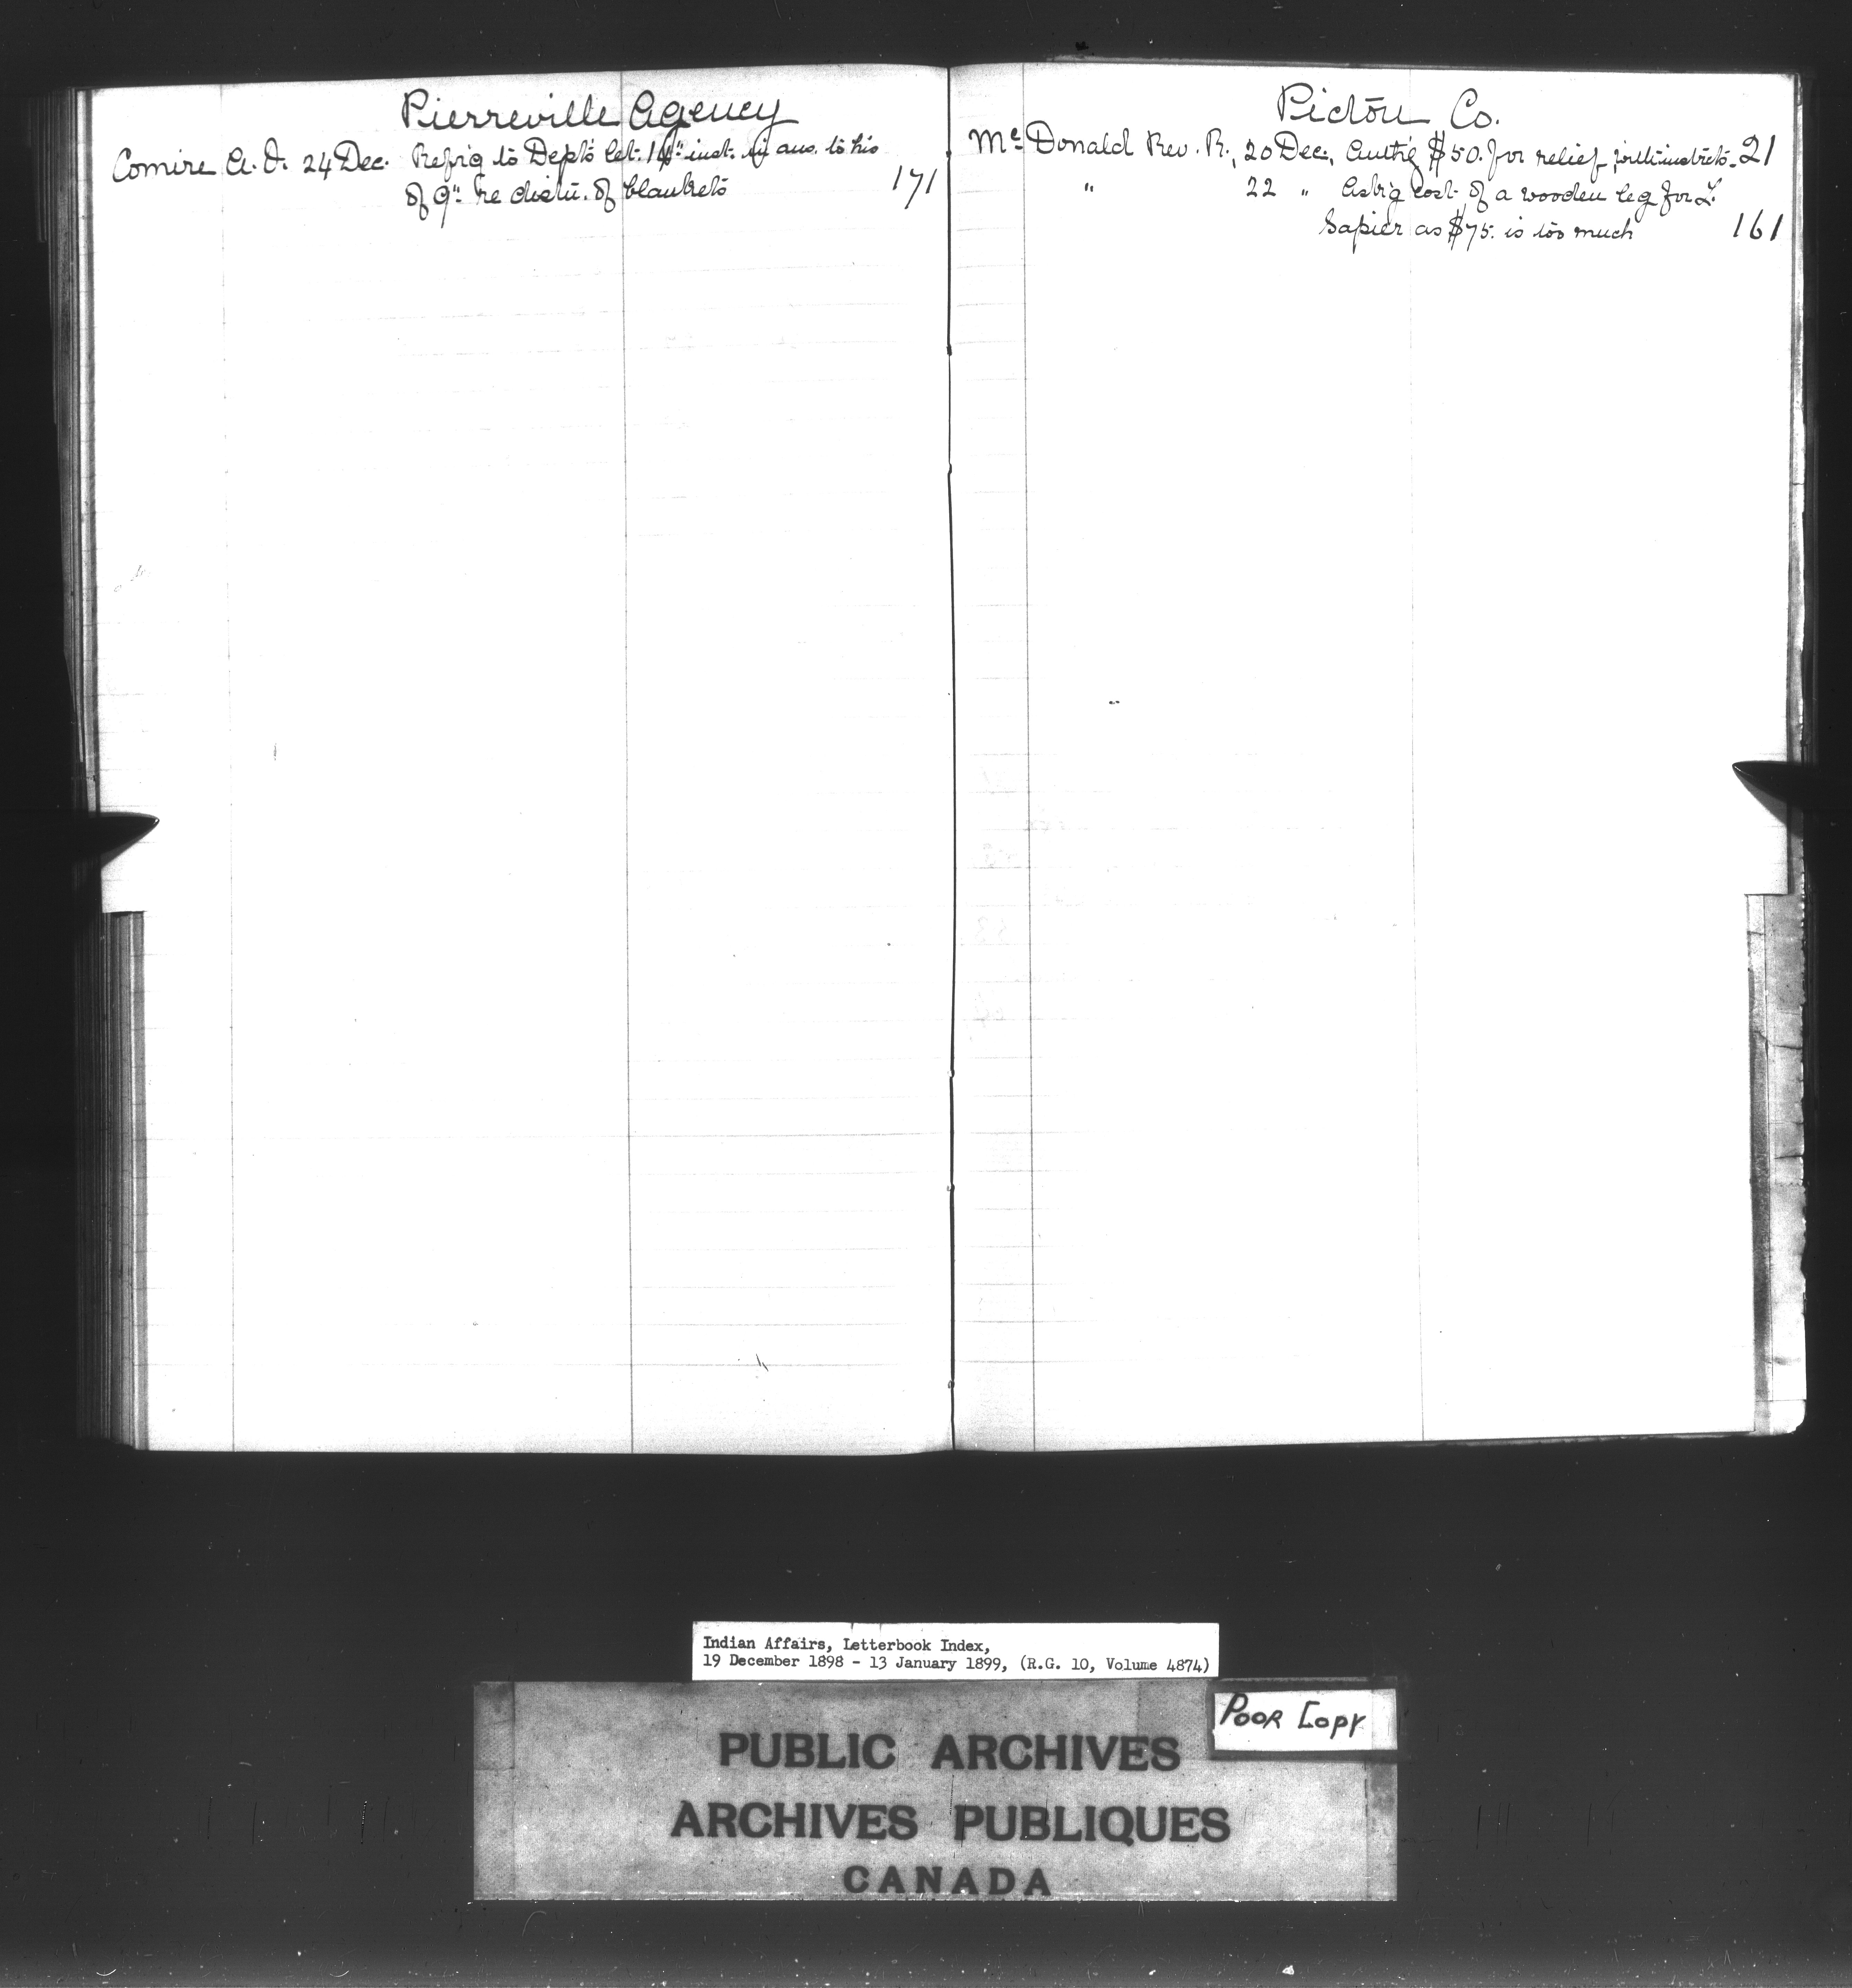 Pierreville Agency
Comire A. O. 24 Dec. Refr'g to Dept's let. inst. in ans. to his
of 9" re distn. of blankets 171
Pictou Co.
Mc Donald Rev. R., 20 Dec., Auth'g $50. for relief, with instrcts. 21
" 22 " Ask'g cost of a wooden leg for
Sapier as $75. is too much 161
Indian Affairs, Letterbook Index,
19 December 1898 - 13 January 1899, (R.G. 10, Volume 4874)
POOR COPY
PUBLIC ARCHIVES
ARCHIVES PUBLIQUES
CANADA